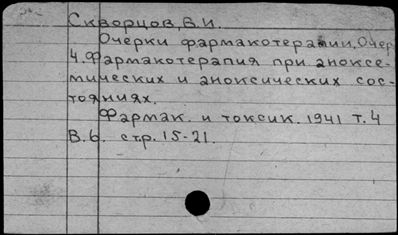 Скворцов, В.И.
Очерки фармакотерапии. Очер
4. Фармакотерапия при аноксе-
мических и аноксических сос-
тояниях.
Фармак. и токсик. 1941 т. 4
В. 6. стр. 15-21.